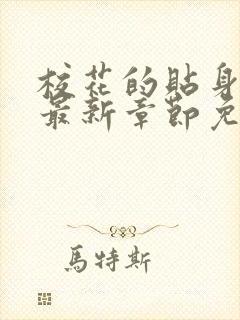 校花的貼身
最新章節免
馬特斯